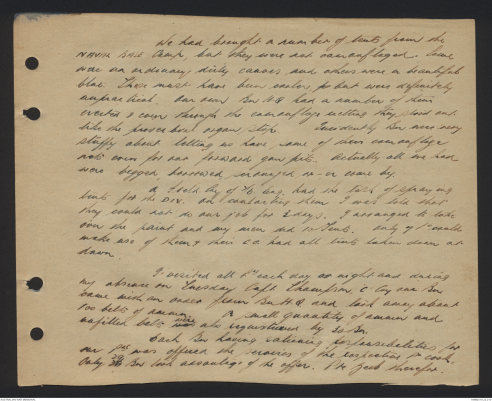 We had brought a number of tents from the
NAVAL BASE Camp, but they were not camouflaged. Some
were an ordinary dirty canvas and others were a beautiful
blue. These must have been cooler but were definitely
unpractical. Our own Bn HQ had a number of them
erected & even through the camouflage netting they stood out
like the proverbial organ stop. Incidently Bn were very
stuffy about letting us have some of their camouflage
nets even for our forward gun pits. Actually all we had
were begged borrowed scrounged or
a Field Coy of Eng. had the task of spraying
tents for the DIV. On contacting them I was told that
they could not do our job for 2 days. I arranged to take
over the paint and my men did 10 Tents. Only 9 Pl could
make use of them & their CO had all tents taken down at
dawn.
I visited all Pl each day or night and during
my absence on Tuesday Capt Thompson C Coy our Bn
came with an order from Bn HQ and took away about
100 belts of ammn. A small quantity of ammn and
unfilled belts were also requisitioned by 20 Bn.
Each Bn having rationing responsibilities for
our Pl was offered the services of the respective Pl cook.
Only 20 Bn took advantage of the offer. The